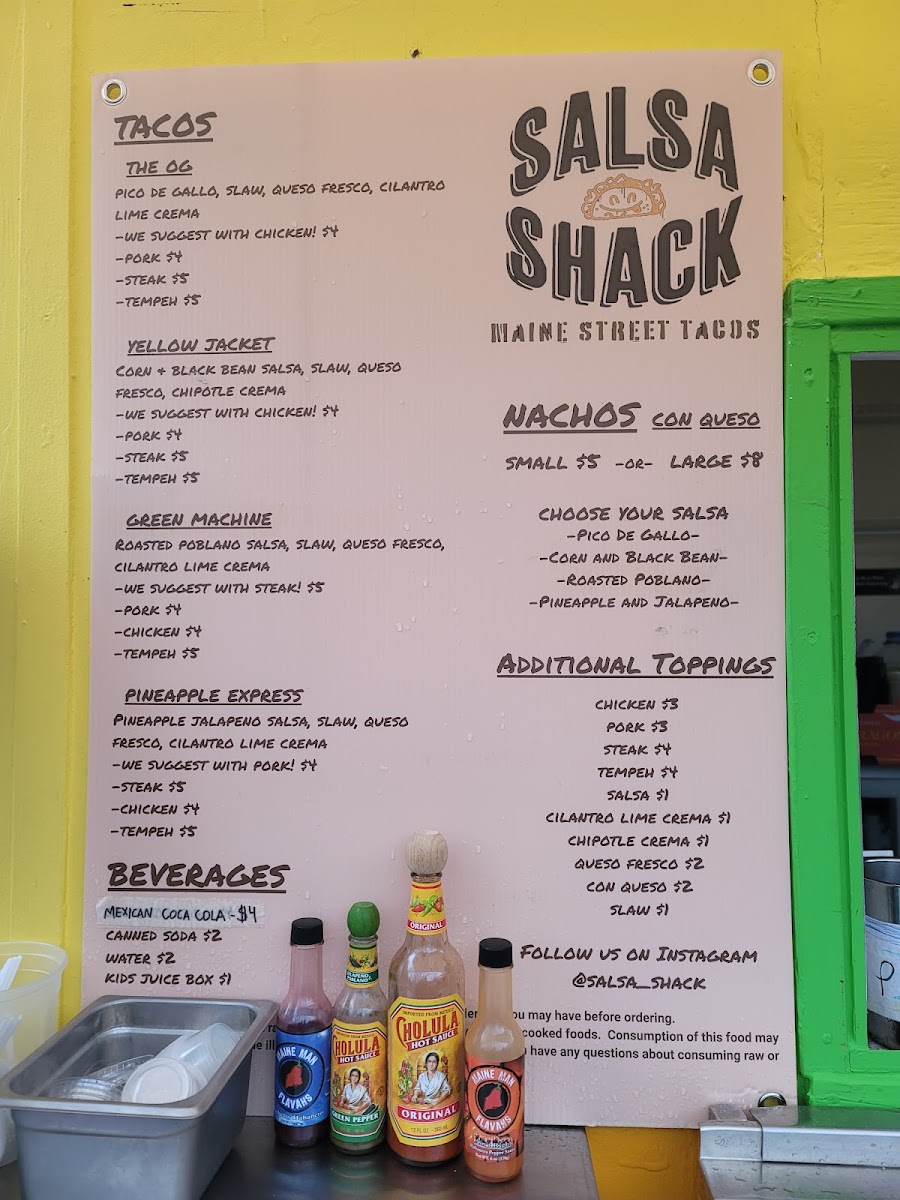 TACOS
THE OG
PICO DE GALLO, SLAW, QUESO FRESCO, CILANTRO
LIME CREMA
-WE SUGGEST WITH CHICKEN! $4
-PORK $4
-STEAK $5
-TEMPEH $5
YELLOW JACKET
CORN & BLACK BEAN SALSA, SLAW, QUESO
FRESCO, CHIPOTLE CREMA
-WE SUGGEST WITH CHICKEN! $4
-PORK $4
-STEAK $5
-TEMPEH $5
GREEN MACHINE
ROASTED POBLANO SALSA, SLAW, QUESO FRESCO,
CILANTRO LIME CREMA
-WE SUGGEST WITH STEAK! $5
-PORK $4
-CHICKEN $4
-TEMPEH $5
PINEAPPLE EXPRESS
PINEAPPLE JALAPENO SALSA, SLAW, QUESO
FRESCO, CILANTRO LIME CREMA
-WE SUGGEST WITH PORK! $4
-STEAK $5
-CHICKEN $4
-TEMPEH $5
BEVERAGES
MEXICAN COCA COLA -$4
CANNED SODA $2
WATER $2
KIDS JUICE BOX $1
SALSA
SHACK
MAINE STREET TACOS
NACHOS CON QUESO
SMALL $5 -OR- LARGE $8
CHOOSE YOUR SALSA
-PICO DE GALLO-
-CORN AND BLACK BEAN-
-ROASTED POBLANO-
-PINEAPPLE AND JALAPENO-
ADDITIONAL TOPPINGS
CHICKEN $3
PORK $3
STEAK $4
TEMPEH $4
SALSA $1
CILANTRO LIME CREMA $1
CHIPOTLE CREMA $1
QUESO FRESCO $2
CON QUESO $2
SLAW $1
FOLLOW US ON INSTAGRAM
@SALSA_SHACK
you may have before ordering.
cooked foods. Consumption of this food may
have any questions about consuming raw or
MAINE MAN
FLAVAHS
CHOLULA
HOT SAUCE
GREEN PEPPER
ORIGINAL
IMPORTED FROM MEXICO
CHOLULA
HOT SAUCE
ORIGINAL
MAINE MAN
FLAVAHS
P